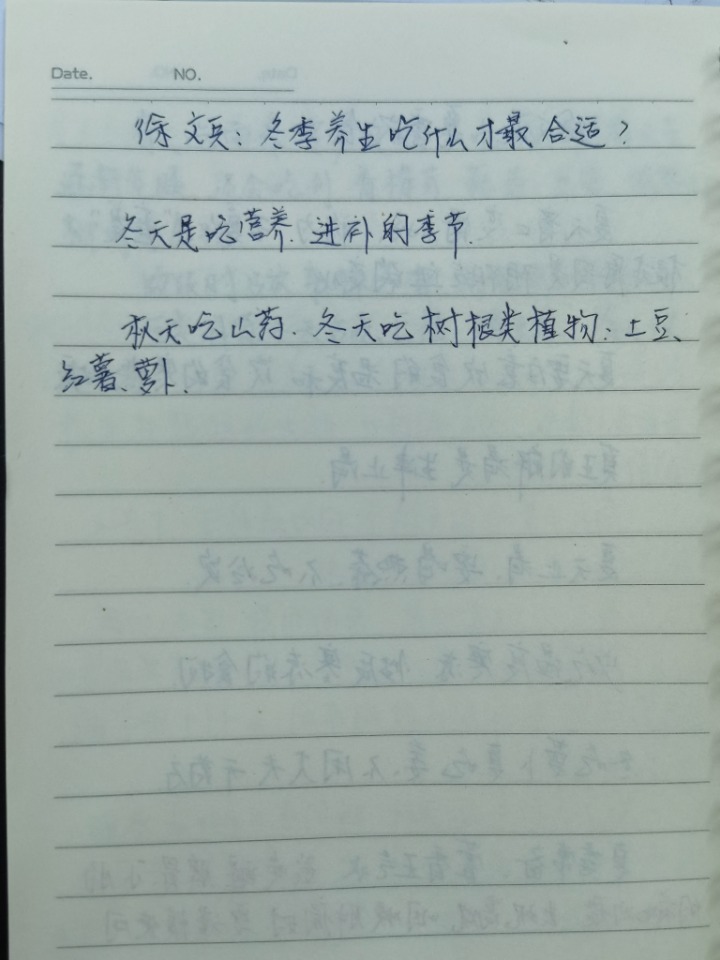 Date. NO.
徐文兵：冬季养生吃什么才最合适？
冬天是吃营养.进补的季节.
秋天吃山药.冬天吃树根类植物：土豆、
红薯、萝卜.